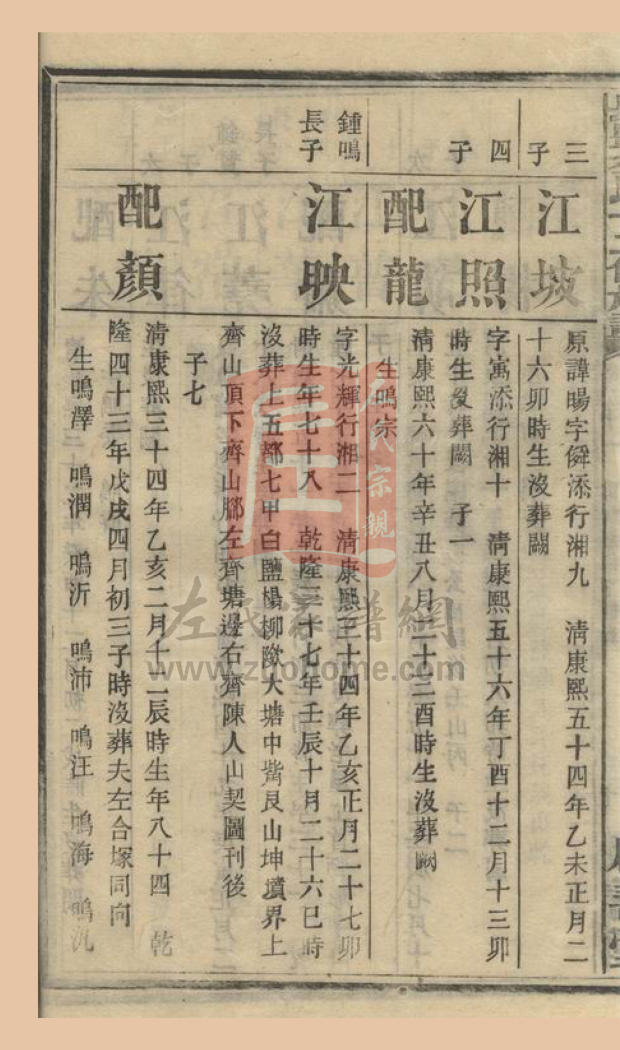 三子
江坡
原諱暘字僢添行湘九 清康熙五十四年乙未正月二
十六卯時生沒葬闕
四子
江照
字寓添行湘十 清康熙五十六年丁酉十二月十三卯
時生沒葬闕 子一
配龍
清康熙六十年辛丑八月二十三酉時生沒葬闕
生鳴宗
鍾鳴長子
江映
字光輝行湘二 清康熙三十四年乙亥正月二十七卯
時生年七十八 乾隆三十七年壬辰十月二十六巳時
沒葬上五都七甲白鹽楊柳墩大塘中嘴艮山坤墳界上
齊山頂下齊山腳左齊塘邊右齊陳人山契圖刊後
子七
配顏
清康熙三十四年乙亥二月十二辰時生年八十四 乾
隆四十三年戊戌四月初三子時沒葬夫左合塚同向
生鳴澤 鳴潤 鳴沂 鳴沛 鳴汪 鳴海 鳴沉
左氏家譜網
www.zhohome.com